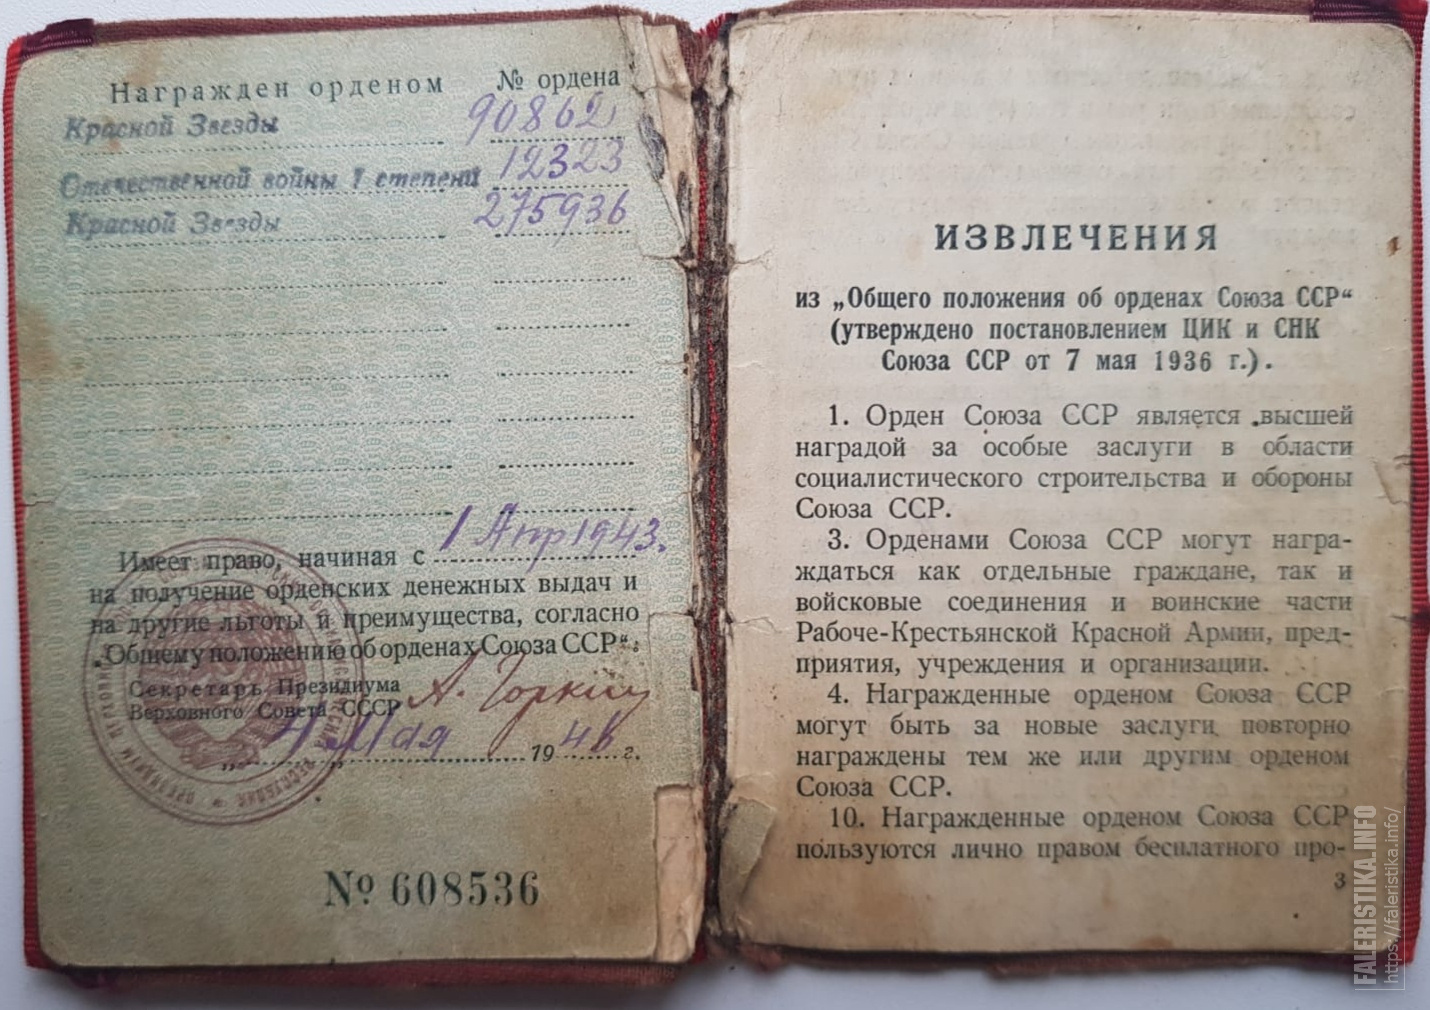 Награжден орденом № ордена
Красной Звезды 90862
Отечественной войны I степени 12323
Красной Звезды 275936
Имеет право, начиная с 1 Апр 1943.
на получение орденских денежных выдач и
на другие льготы и преимущества, согласно
„Общему положению об орденах Союза ССР“.
Секретарь Президиума
Верховного Совета СССР А. Горкин
„4 Мая 1946 г.
№ 608536
ИЗВЛЕЧЕНИЯ
из „Общего положения об орденах Союза ССР“
(утверждено постановлением ЦИК и СНК
Союза ССР от 7 мая 1936 г.).
1. Орден Союза ССР является высшей
наградой за особые заслуги в области
социалистического строительства и обороны
Союза ССР.
3. Орденами Союза ССР могут награ-
ждаться как отдельные граждане, так и
войсковые соединения и воинские части
Рабоче-Крестьянской Красной Армии, пред-
приятия, учреждения и организации.
4. Награжденные орденом Союза ССР
могут быть за новые заслуги повторно
награждены тем же или другим орденом
Союза ССР.
10. Награжденные орденом Союза ССР
пользуются лично правом бесплатного про-
3
FALERISTIKA.INFO
https://faleristika.info/